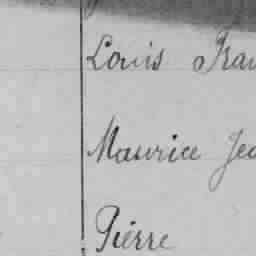 Louis Fran
Maurice Jea
Pierre